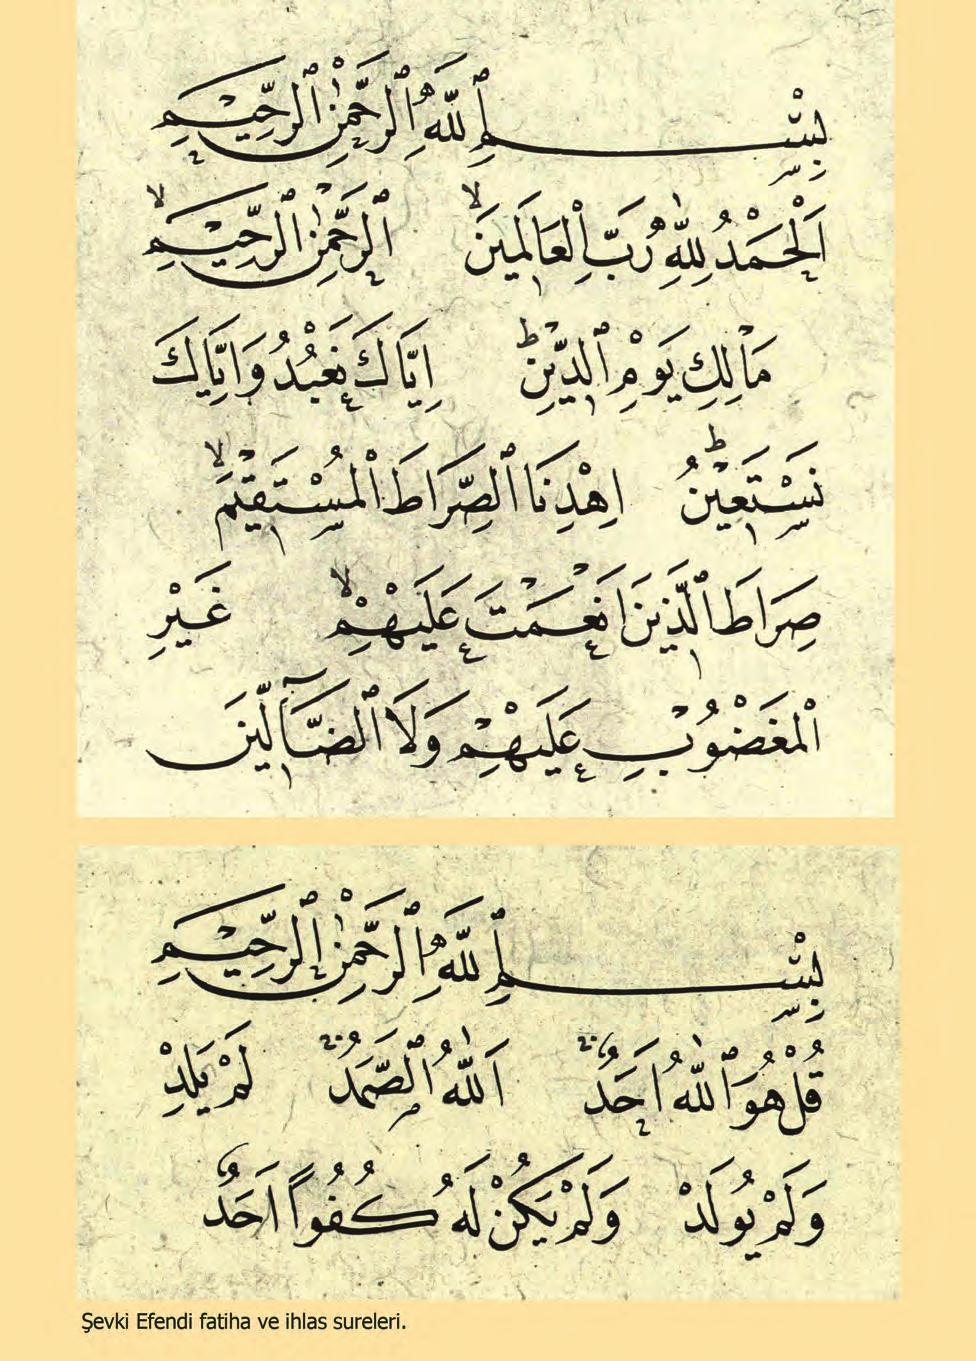 بِسْمِ اللهِ الرَّحْمٰنِ الرَّحِيمِ
اَلْحَمْدُ لِلّٰهِ رَبِّ الْعَالَمِينَۙ اَلرَّحْمٰنِ الرَّحِيمِۙ
مَالِكِ يَوْمِ الدِّينِۜ اِيَّاكَ نَعْبُدُ وَاِيَّاكَ
نَسْتَعِينُۜ اِهْدِنَا الصِّرَاطَ الْمُسْتَقِيمَۙ
صِرَاطَ الَّذِينَ اَنْعَمْتَ عَلَيْهِمْۙ غَيْرِ
الْمَغْضُوبِ عَلَيْهِمْ وَلَا الضَّٓالِّينَ
بِسْمِ اللهِ الرَّحْمٰنِ الرَّحِيمِ
قُلْ هُوَ اللّٰهُ اَحَدٌ اَللّٰهُ الصَّمَدُ لَمْ يَلِدْ
وَلَمْ يُولَدْ وَلَمْ يَكُنْ لَهُ كُفُوًا اَحَدٌ
Şevki Efendi fatiha ve ihlas sureleri.